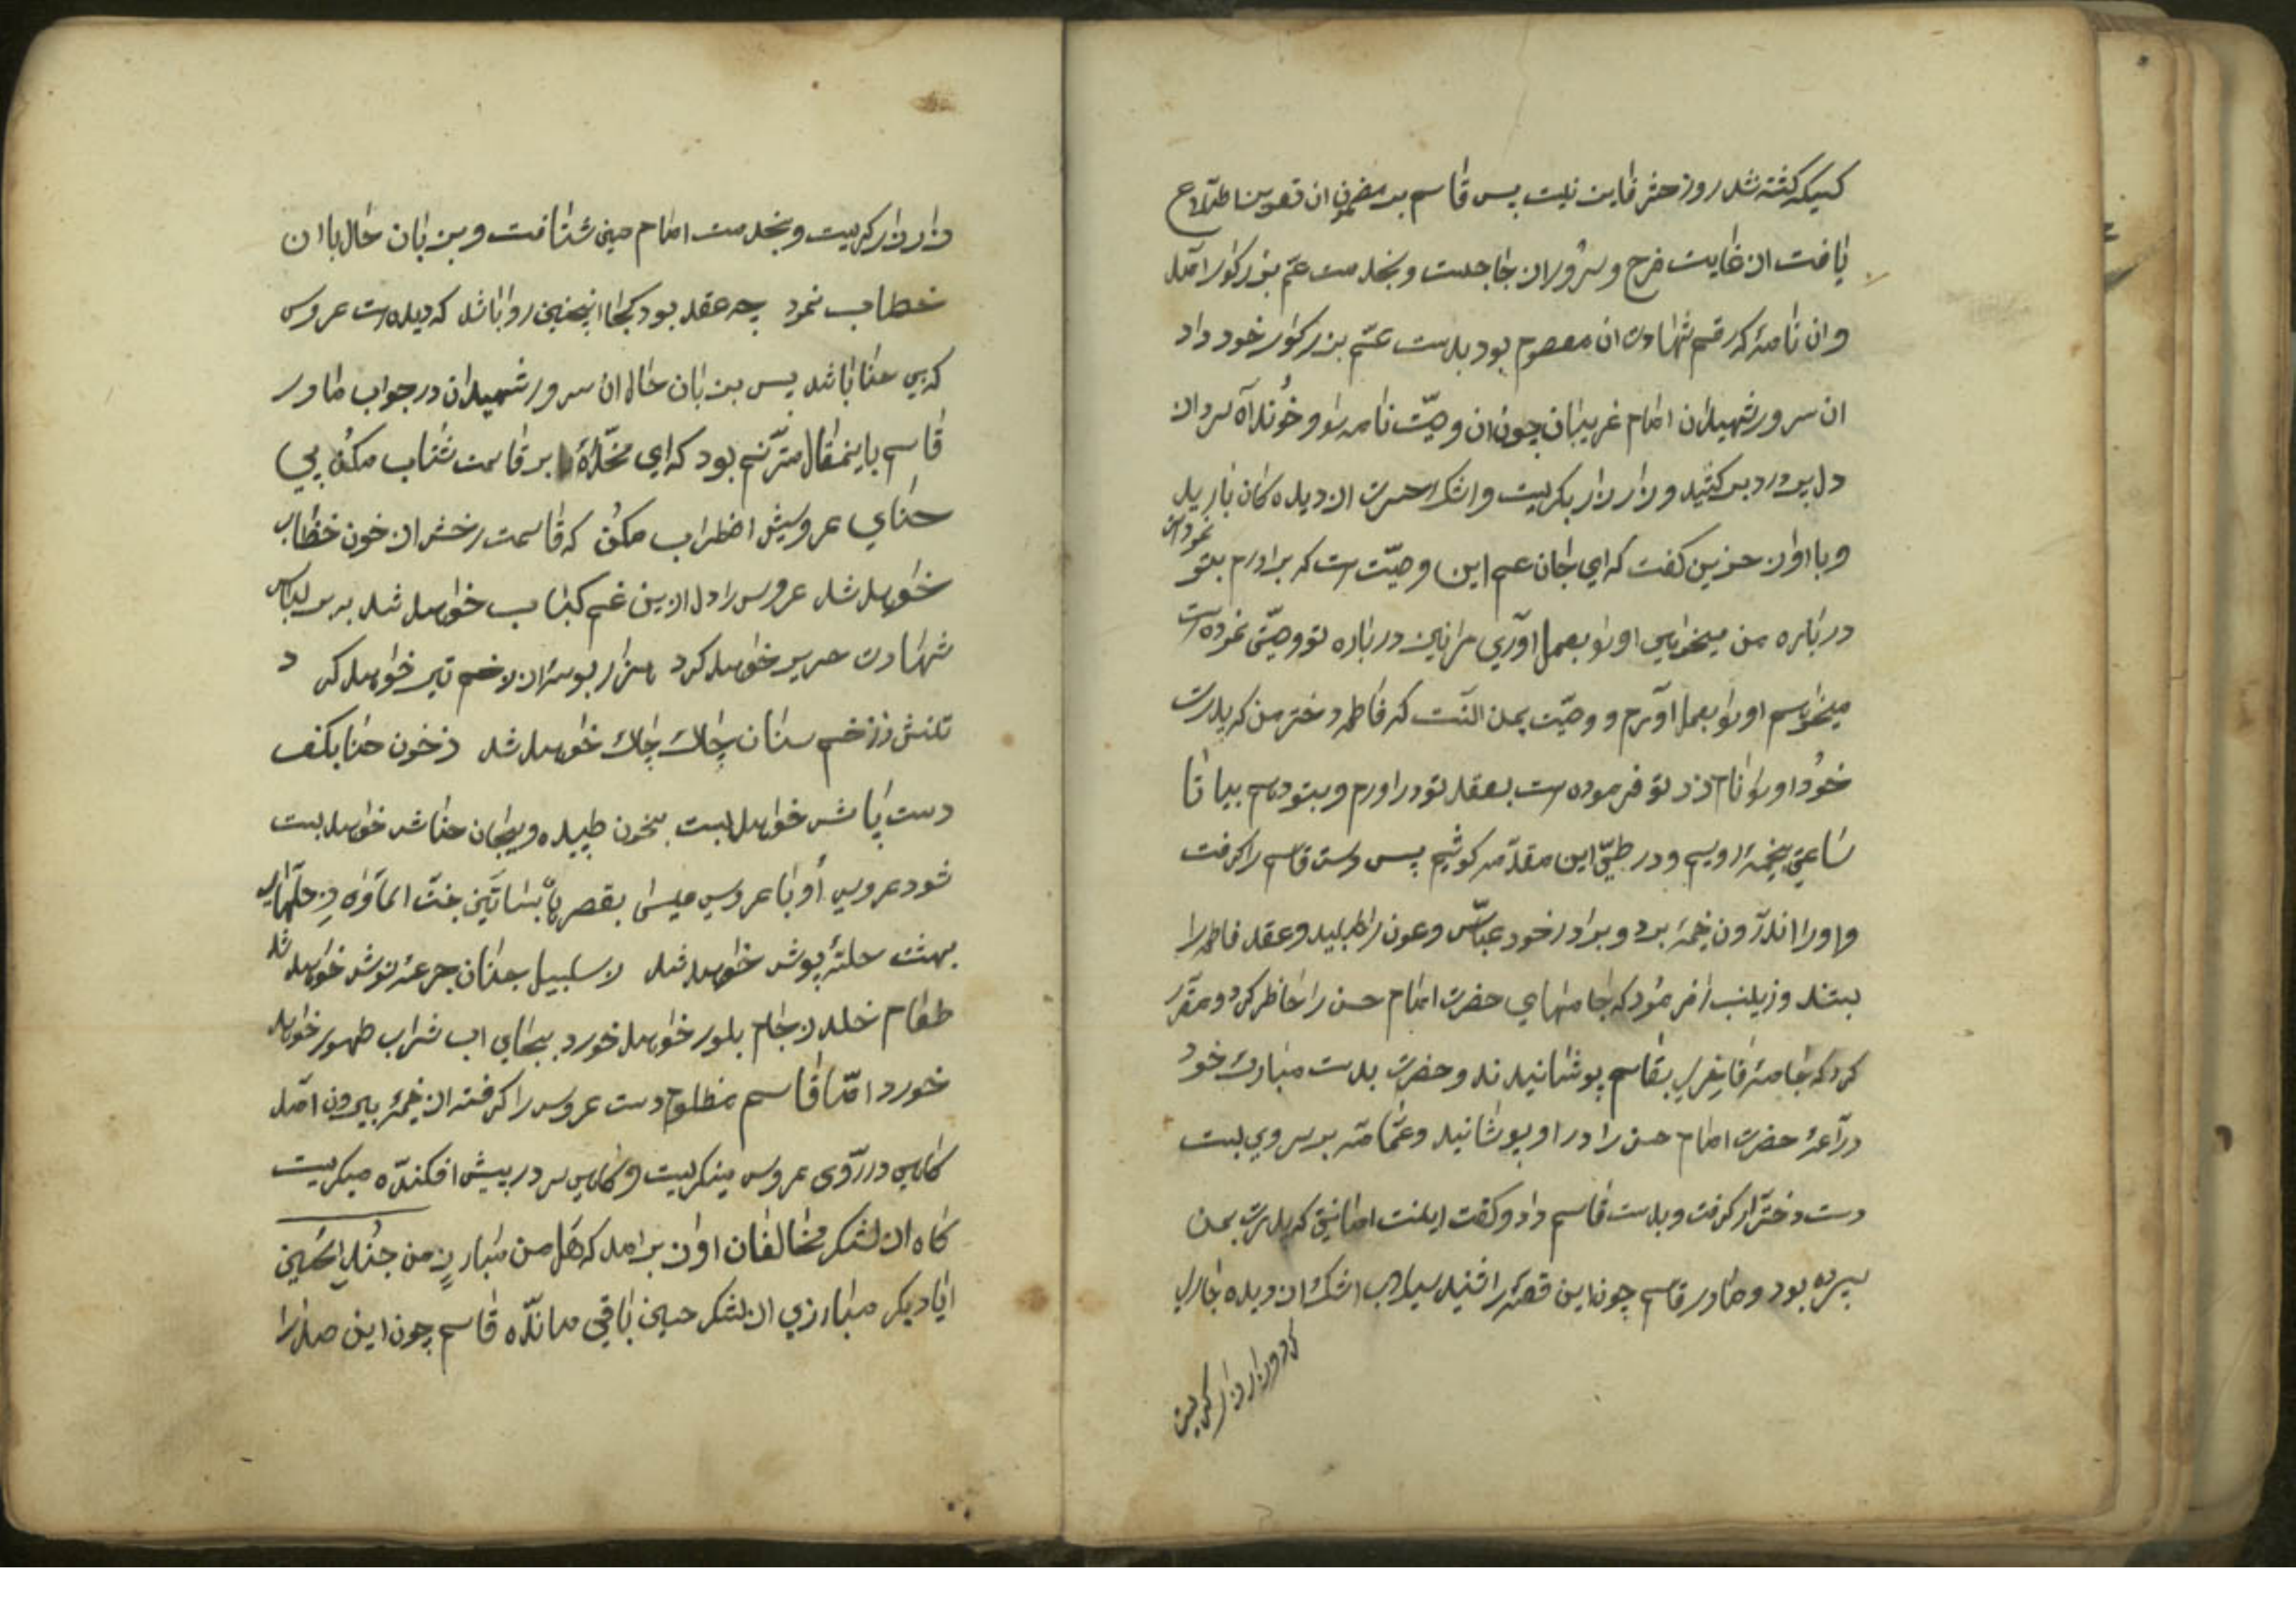 کسیکه کشته نشد روز حشر فایز نیست پس قاسم بر مضمون ان تعویذ اطلاع
یافت از غایت فرح و سرور از جا جست و بخدمت عم بزرکوار امد
و ان نامهٔ که رقم شهادت ان معصوم بود بدست عم بزرکوار خود داد
ان سرور شهیدان امام غریبان چون ان وصیّت نامه را و خوند آه سرد از
دل پر درد بر کشید و زار زار بکریست و اشک حسرت از دیده کان بارید
و با اواز حزین کفت که ای جان عم این وصیّت است که برادرم بتو نموده است
در باره من میخواهی او را بعمل آوری مرا نیز در باره تو وصیّتی نموده است
میخواهم او را بعمل آورم و وصیّت بمن انست که فاطمه دختر من که پدرت
خود او را نام زد تو فرموده است بعقد تو در اورم و بتو دهم بیا تا
ساعتی بخیمه رویم و در طیّ این مقدّمه کوشیم پس دست قاسم را کرفت
و او را اندرون خیمه برد و برادر خود عباس و عون را طلبید و عقد فاطمه را
بستند و زینب را فرمود که جامهای حضرت امام حسن را حاظر کرد و مقرّر
کرد که جامهٔ فاخر بقاسم پوشانیدند و حضرت بدست مبارک خود
درّاعهٔ حضرت امام حسن را در او پوشانید و عمامه بر سر وی بست
دست دختر را کرفت و بدست قاسم داد و کفت اینست امانتی که پدرت بمن
سپرده بود و مادر قاسم چون این قصه را شنید سیلاب اشک از دیده جاری
کرد و زار زار کریست
و زار زار کریست و بخدمت امام حسین شتافت و بزبان حال با ان
خطاب نمود چه عقد بود کجا اینچنین روا باشد که دیده است عروس
که بی حنا باشد پس بزبان حال ان سرور شهیدان در جواب مادر
قاسم باینمقال مترنّم بود که ای مخدّرهٔ بر قاسمت شتاب مکن بی
حنای عروسیش اضطراب مکن که قاسمت رخش از خون خظاب
خواهد شد عروس را دل ازین غم کباب خواهد شد ببر لباس
شهادت حریر خواهد کرد هزار بوسه از زخم تیر خواهد کرد
تنش ز زخم سنان چاک چاک خواهد شد ز خون حنا بکف
دست پاش خواهد بست بخون طپیده و بیجان حناش خواهد بست
شود عروسی او با عروسی عیسی بقصر بساتین جنت الماوی ز حلّهای
بهشت حلهٔ پوش خواهد شد ز سلسبیل جنان جرعه نوش خواهد شد
طعام خلد ز جام بلور خواهد خورد بجای اب شراب طهور خواهد
خورد امّا قاسم مظلوم دست عروس را کرفته از خیمه بیرون امد
کاهی در روی عروس مینکریست و کاهی سر در پیش افکنده میکریست
کاه از لشکر مخالفان اواز برامد که هَل من مبارزٍ من جُندِ الحُسَین
ایا دیکر مبارزی از لشکر حسین باقی مانده قاسم چون این صدا را